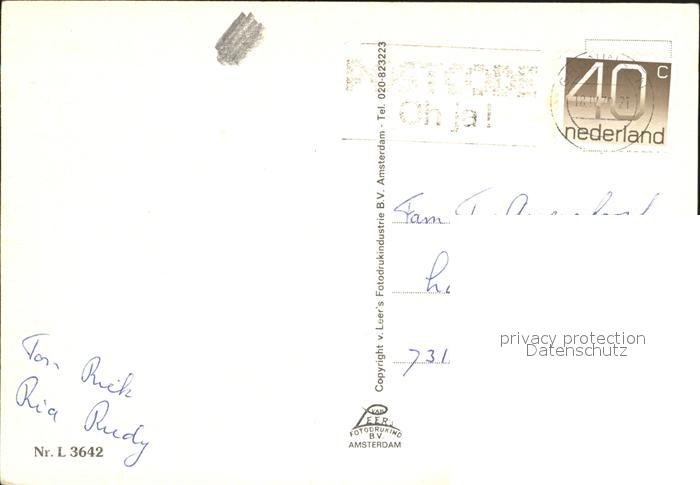 POSTCODE
Oh ja!
40c
nederland
Copyright v. Leer's Fotodrukindustrie B.V. Amsterdam - Tel. 020-823223
Fam
731
privacy protection
Datenschutz
Ton Rick
Ria Rudy
Nr. L 3642
VAN
LEER
FOTODRUKIND
B.V.
AMSTERDAM